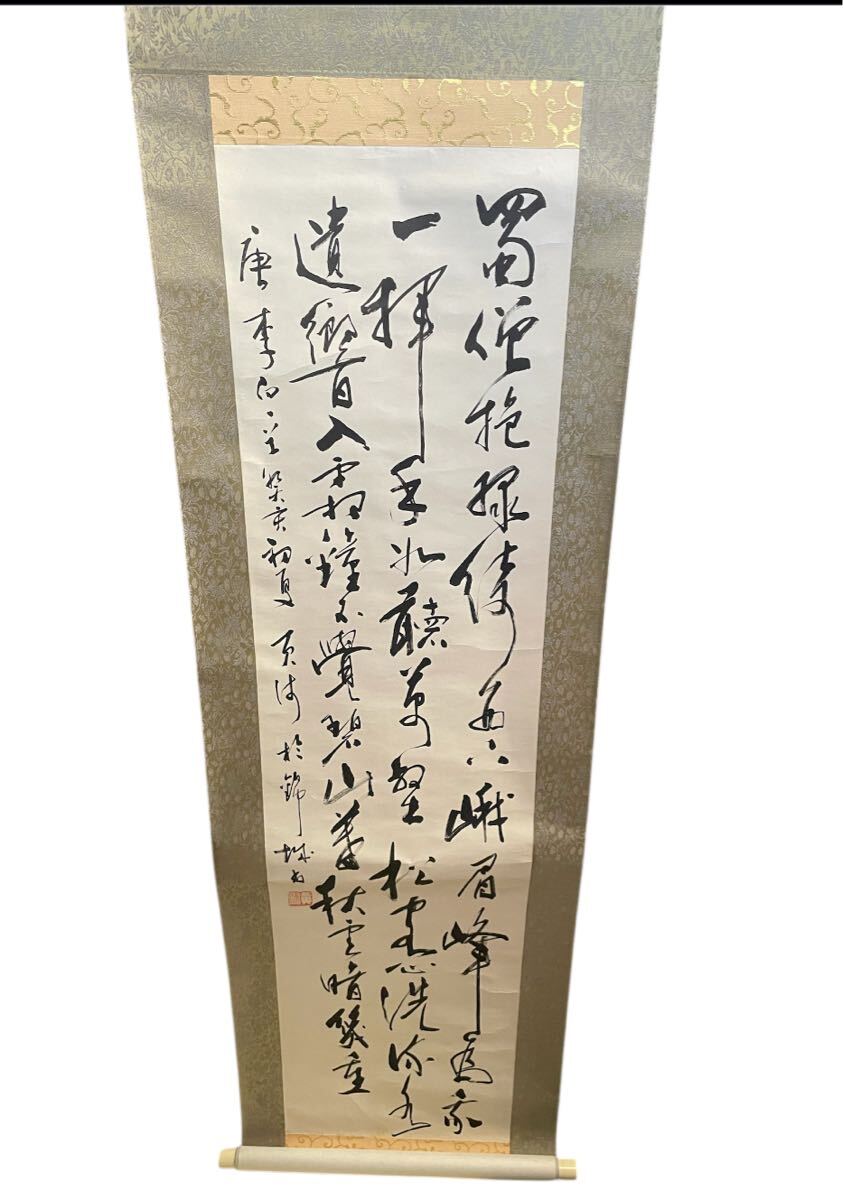 蜀僧抱綠綺西下峨眉峰為我
一揮手如聽萬壑松客心洗流水
遺響入霜鐘不覺碧山暮秋雲暗幾重
唐李白詩癸亥初夏 於錦城書